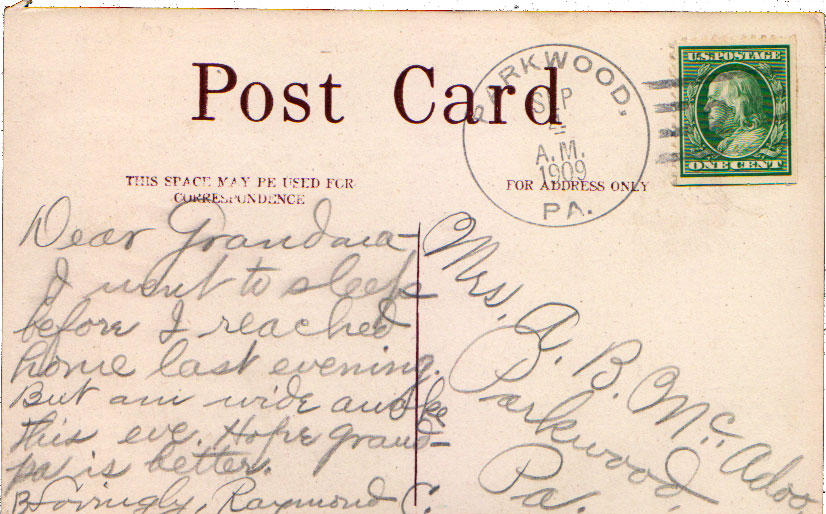 Post Card
PARKWOOD,
SEP
4
A.M.
1909
PA.
U.S. POSTAGE
ONE CENT
THIS SPACE MAY BE USED FOR
CORRESPONDENCE
FOR ADDRESS ONLY
Dear Grandma-
I went to sleep
before I reached
home last evening.
But am wide awake
this eve. Hope grand-
pa is better.
Lovingly, Raymond C.
Mrs. A. B. McAdoo,
Parkwood,
Pa.